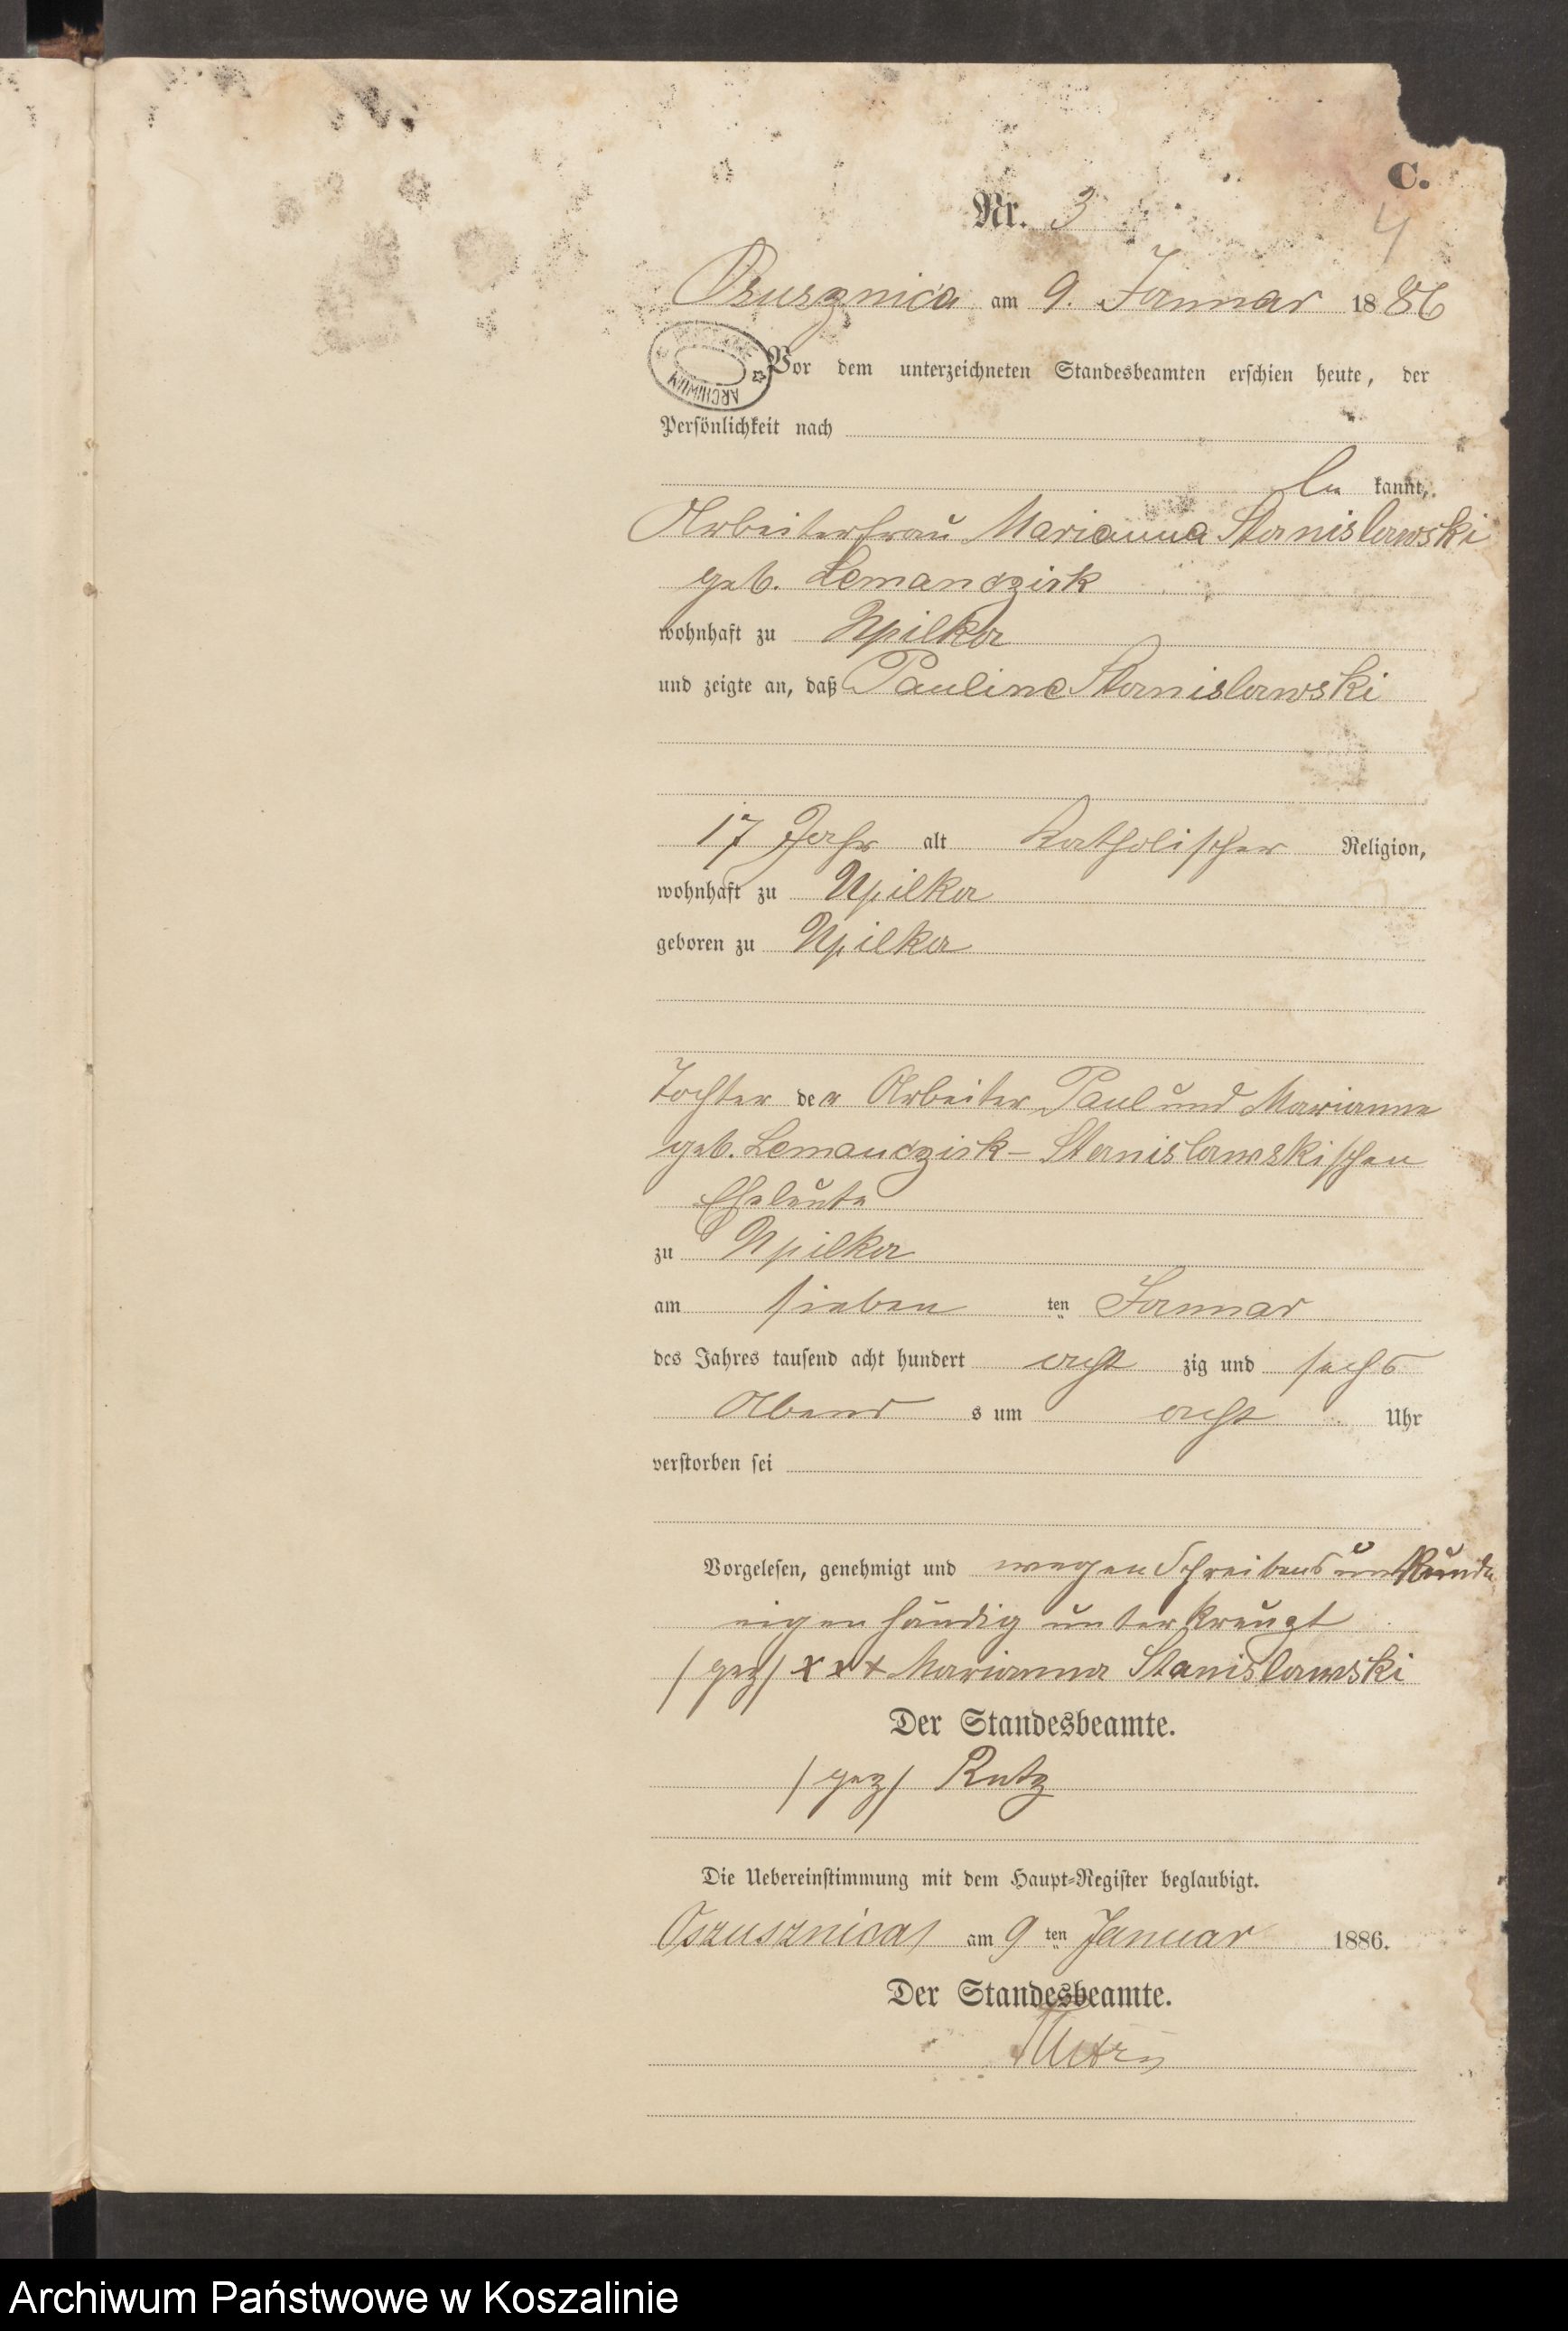 C.
Nr. 3
4
Osusznica am 9. Januar 1886
ARCHIWUM
Vor dem unterzeichneten Standesbeamten erschien heute, der
Persönlichkeit nach
be kannt,
Arbeiterfrau Marianna Stanislawski
geb. Lemanczick
wohnhaft zu Upilka
und zeigte an, daß Pauline Stanislawski
17 Jahr alt katholischer Religion,
wohnhaft zu Upilka
geboren zu Upilka
Tochter der Arbeiter Paul und Marianna
geb. Lemanczick - Stanislawskischen
Eheleute
zu Upilka
am sieben ten Januar
des Jahres tausend acht hundert acht zig und sechs
Abend s um acht Uhr
verstorben sei
Vorgelesen, genehmigt und wegen Schreibensunkunde
eigenhändig unterkreuzt
/gez/ xxx Marianna Stanislawski
Der Standesbeamte.
/gez/ Rutz
Die Uebereinstimmung mit dem Haupt-Register beglaubigt.
Oszusznica am 9 ten Januar 1886.
Der Standesbeamte.
Archiwum Państwowe w Koszalinie